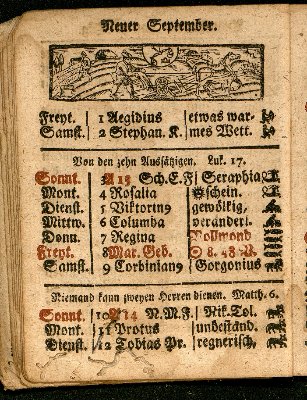 Neuer September.
Freyt. 1 Aegidius etwas war-
Samst. 2 Stephan. K. mes Wett.
Von den zehn Aussätzigen. Luk. 17.
Sonnt. A 13 Sch.E.F Seraphia
Mont. 4 Rosalia schein.
Dienst. 5 Viktorin9 gewölkig,
Mittw. 6 Columba veränderl.
Donn. 7 Regina Vollmond
Freyt. 8 Mar. Geb. 8. 48
Samst. 9 Corbinian9 Gorgonius
Niemand kann zweyen Herren dienen. Matth. 6.
Sonnt. 10 A 14 N.M.F. Nik.Tol.
Mont. 11 Protus unbeständ.
Dienst. 12 Tobias Pr. regnerisch,